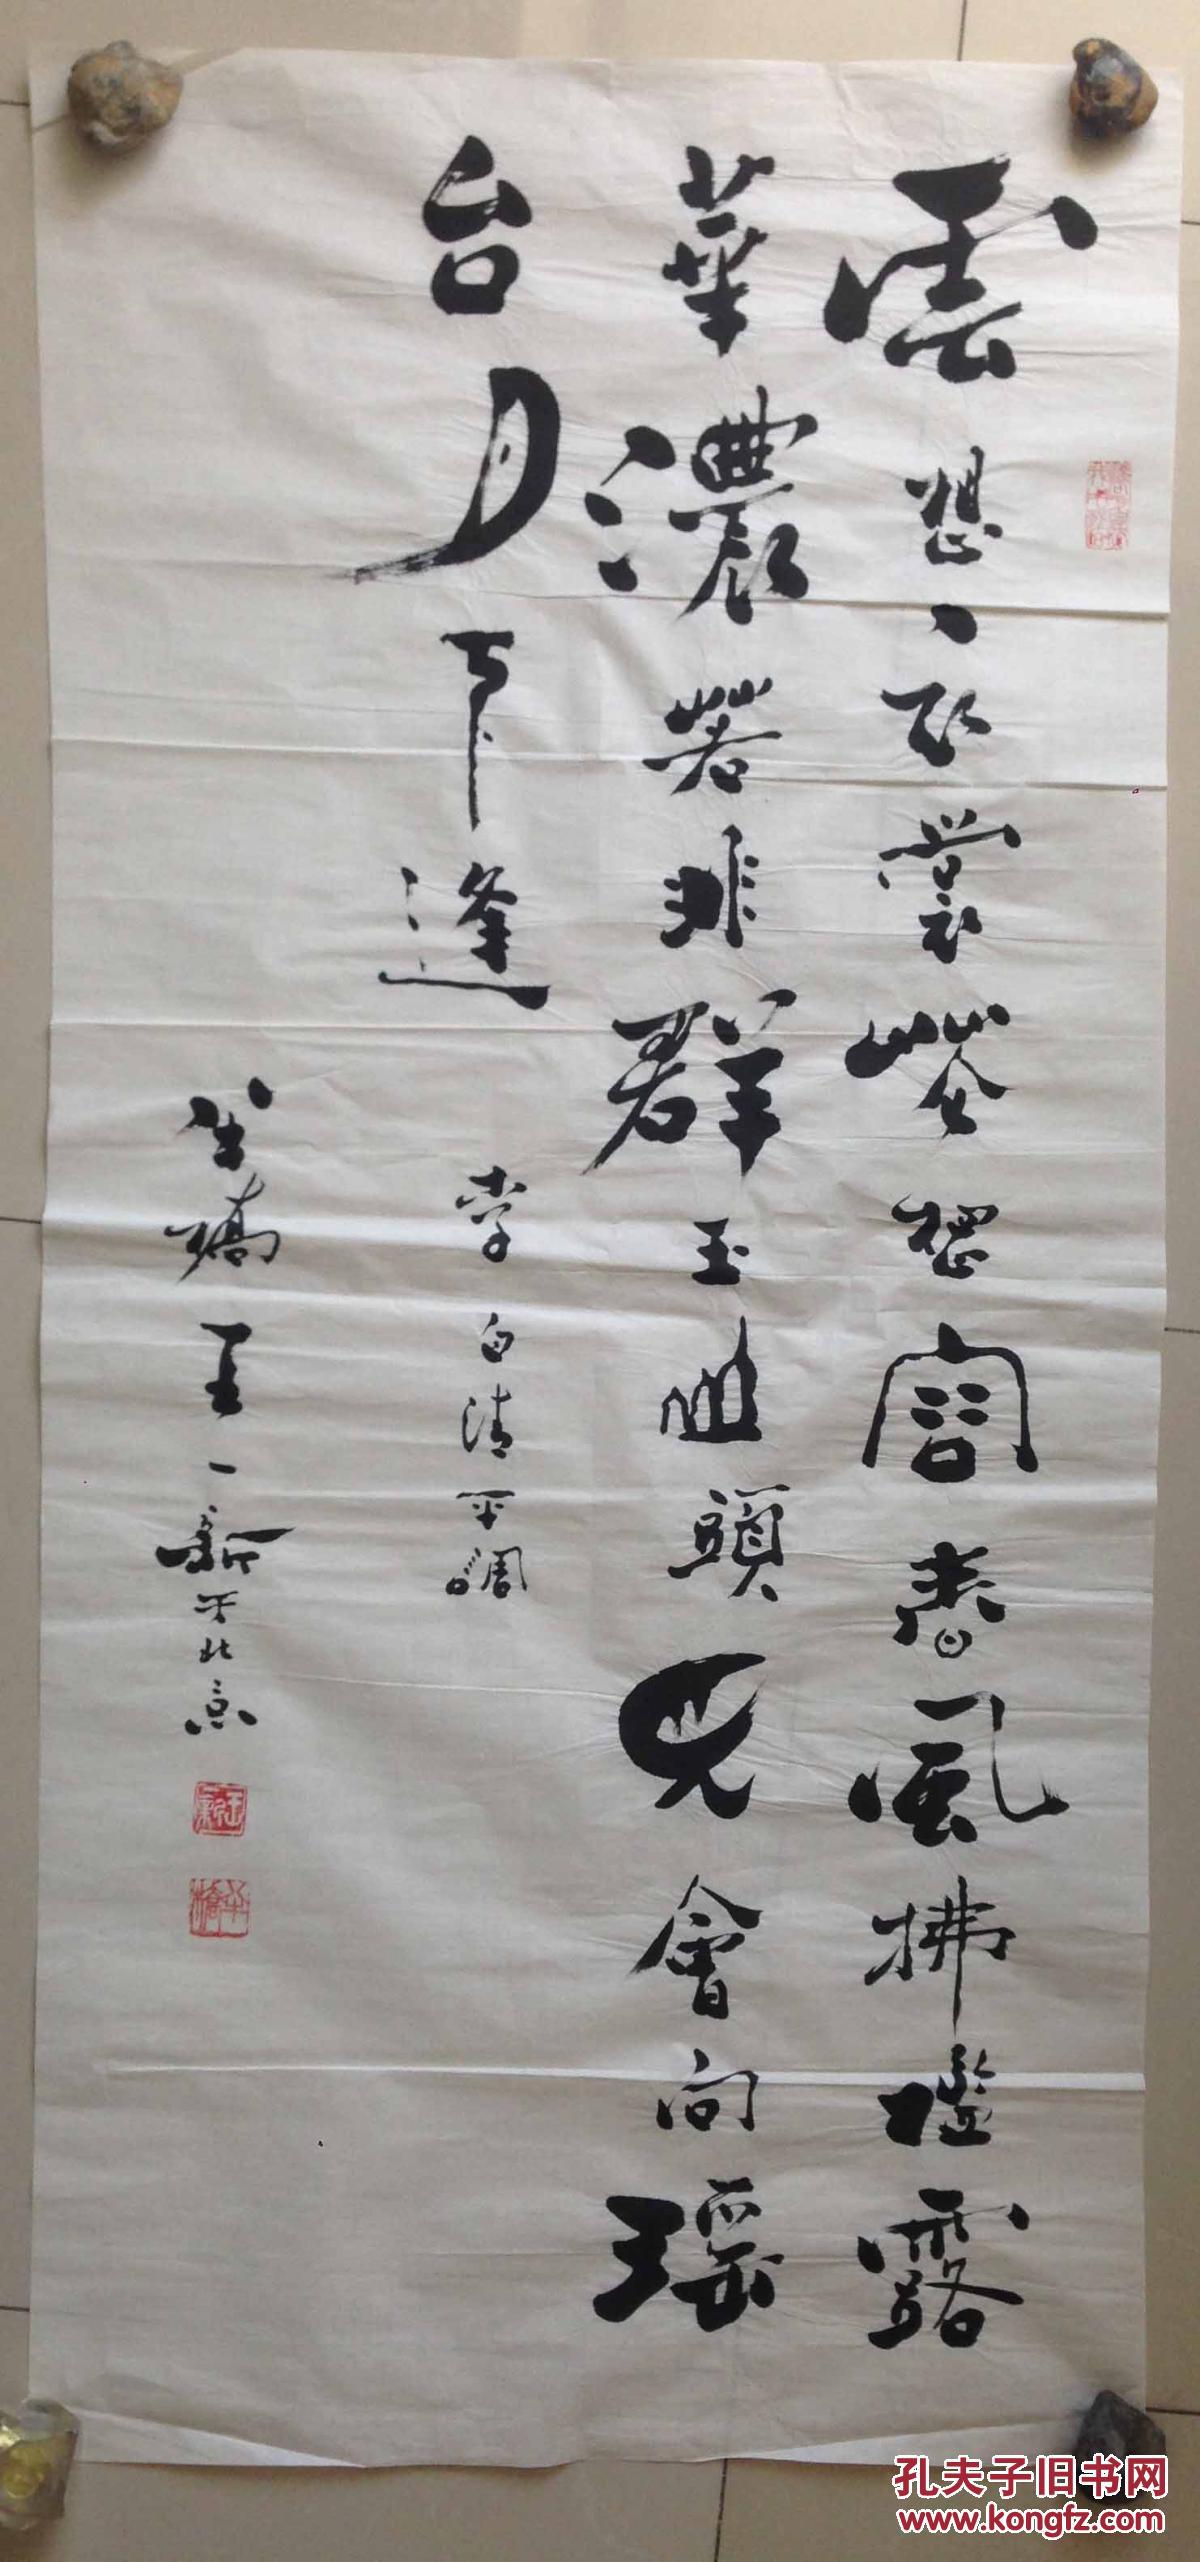 雲想衣裳花想容春風拂檻露
華濃若非群玉山頭見會向瑶
台月下逢
李白清平調
半橋王一新于北京
王一新
半橋
孔夫子旧书网
www.kongfz.com